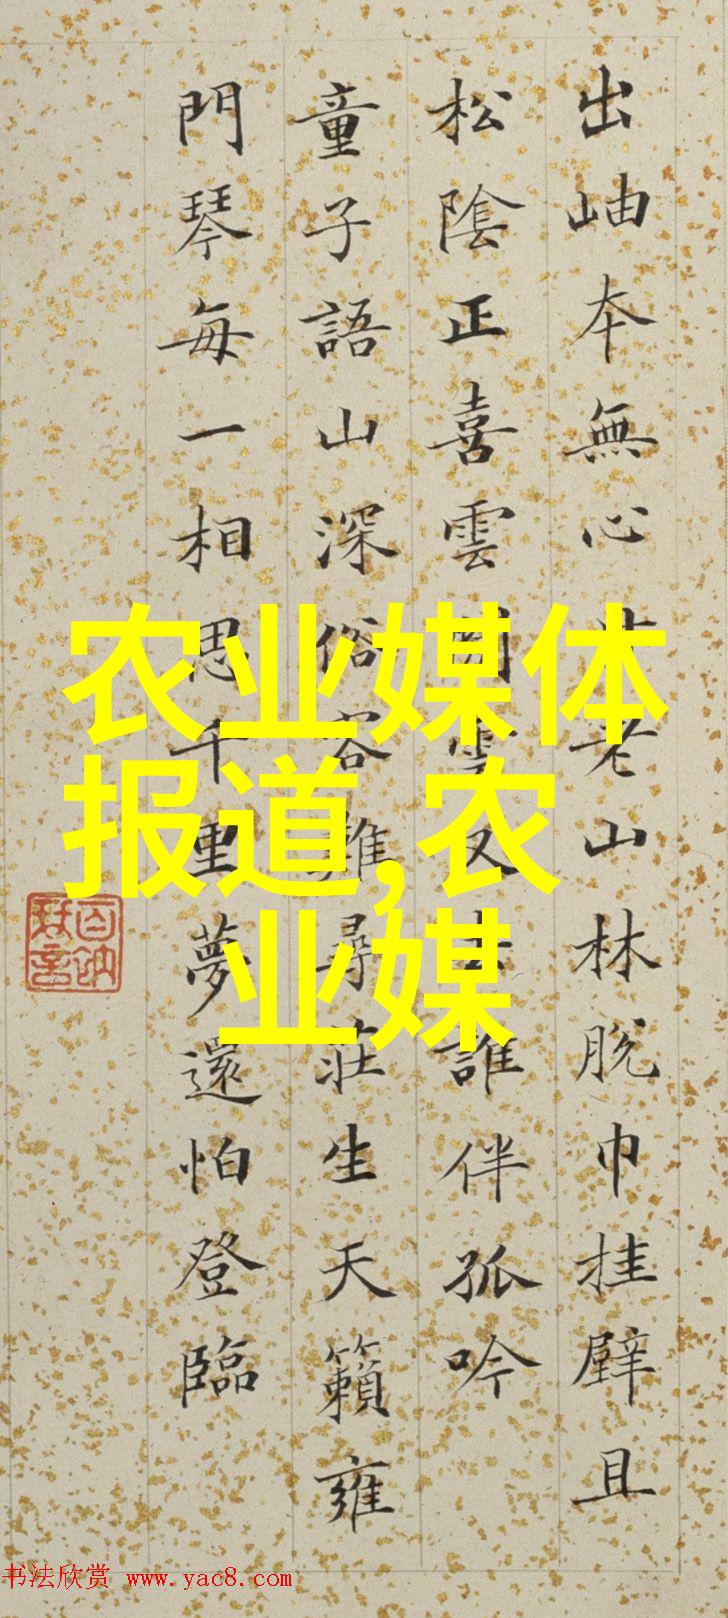 出岫本無心
老山林脫巾挂壁且
松陰正喜雲
又
誰伴孤吟
童子語山深俗客難尋莊生天籟雍
門琴每一相思千里夢還怕登臨
农业媒体
报道,农
业媒
书法欣赏 www.yac8.com